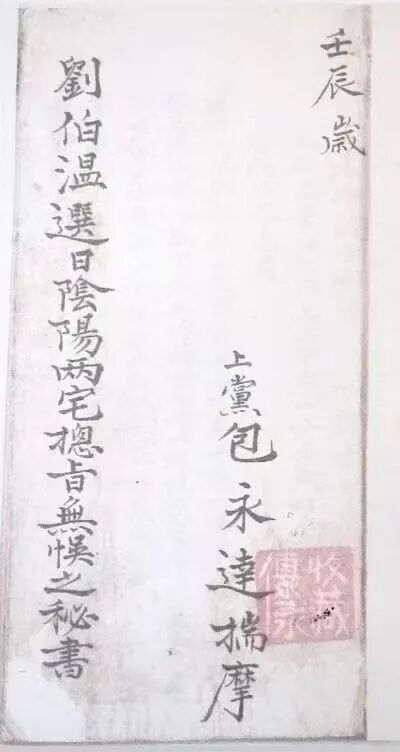 壬辰歲
上黨包永達揣摩
劉伯温選日陰陽两宅摠旨無悞之秘書
收藏